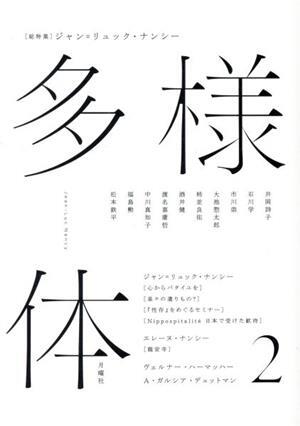 [総特集]ジャン=リュック・ナンシー
多様体
2
Jean-Luc Nancy
井岡詩子
石川学
市川崇
大池惣太郎
柿並良佑
酒井健
渡名喜庸哲
中川真知子
福島勲
松本鉄平
ジャン=リュック・ナンシー
[心からバタイユを]
[『性存』をめぐるセミナー]
[Nippospitalité 日本で受けた歓待]
エレーヌ・ナンシー
[龍安寺]
ヴェルナー・ハーマッハー
A・ガルシア・デュットマン
月曜社